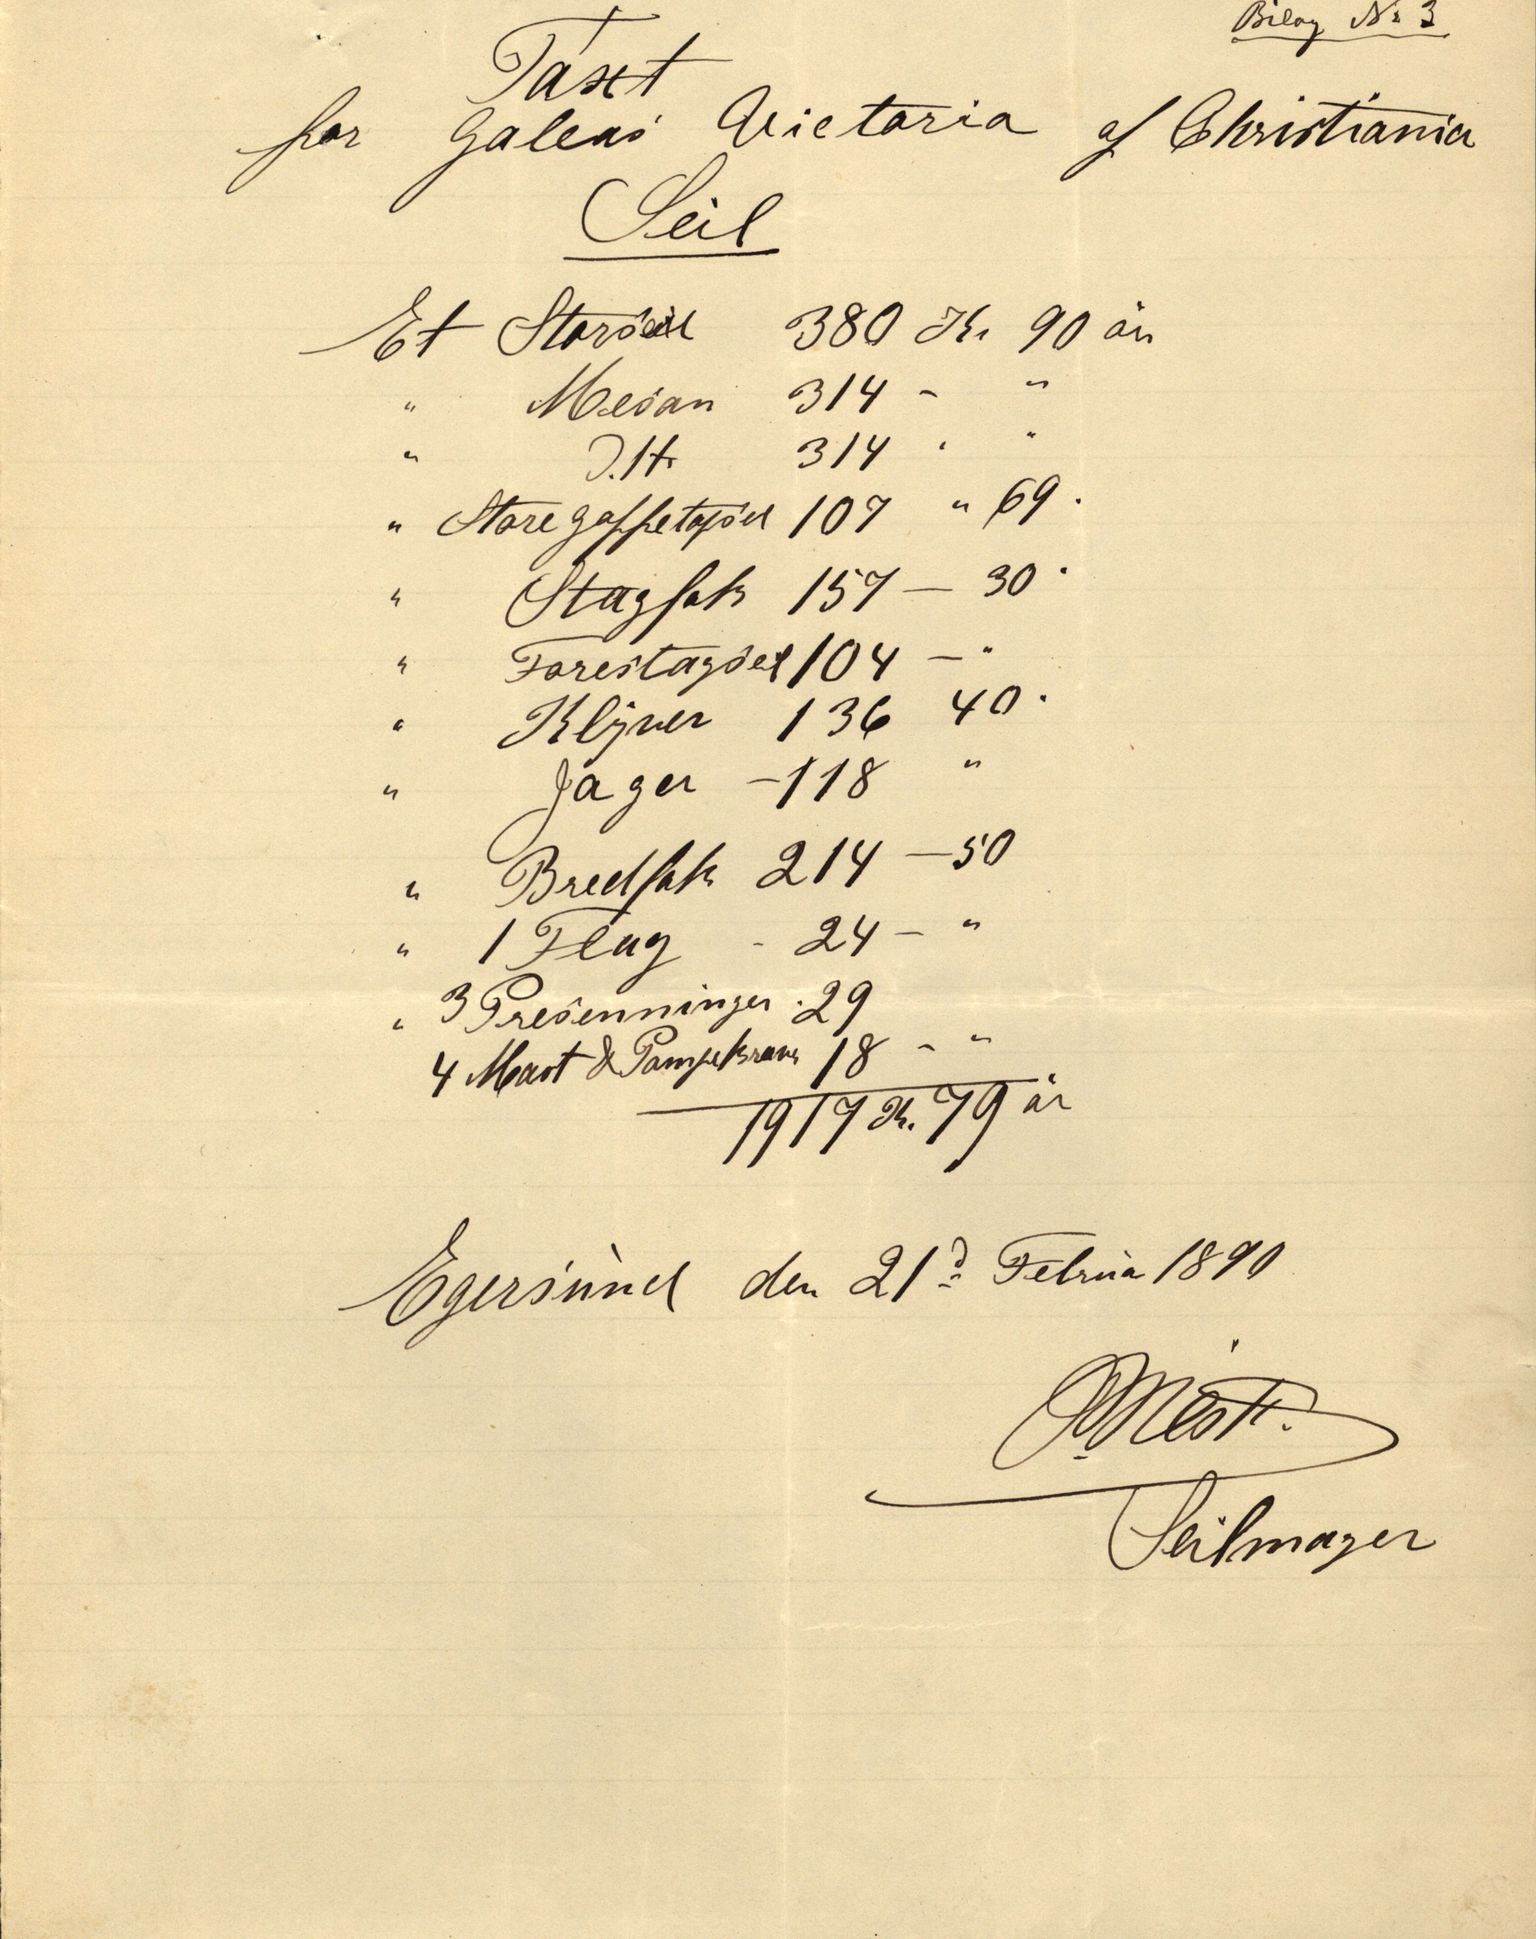 Bilag No 3
Taxt
for Galeas Victoria af Christiania
Seil
Et Storseil 380 Kr 90 ör
" Mesan 314 - "
" Dito 314 " "
" Store gaffeltopseil 107 " 69 "
" Stagfok 157 — 30 "
" Forestagseil 104 — "
" Klyver 136 40 "
" Jager — 118 "
" Bredfok 214 — 50
" 1 Flag - 24 - "
" 3 Presenninger . 29
4 Mast & Pompekraver 18 - "
1917 Kr. 79 ör
Egersund den 21d Februa 1890
Seilmager